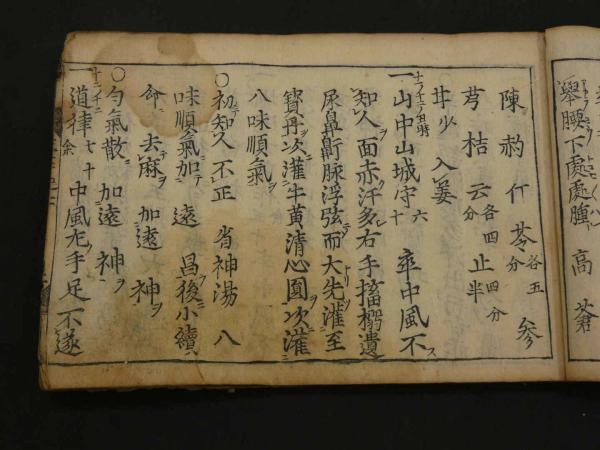 舉腰下處處腫 高 蒼
陳 芍 仃 苓 各五分 參
芎 桔 云 各四分 止 四分半
甘少 入姜
一山中山城守 六十 卒中風不
知人面赤汗多右手搐搦遺
尿鼻鼾脉浮弦而大先灌至
寳丹次灌牛黄清心圓次灌
八味順氣
○初知久不正 省神湯 八
味順氣加 遠 昌後小續
命 去麻 加遠 神
○匀氣散 加遠 神
一道律 七十余 中風左手足不遂